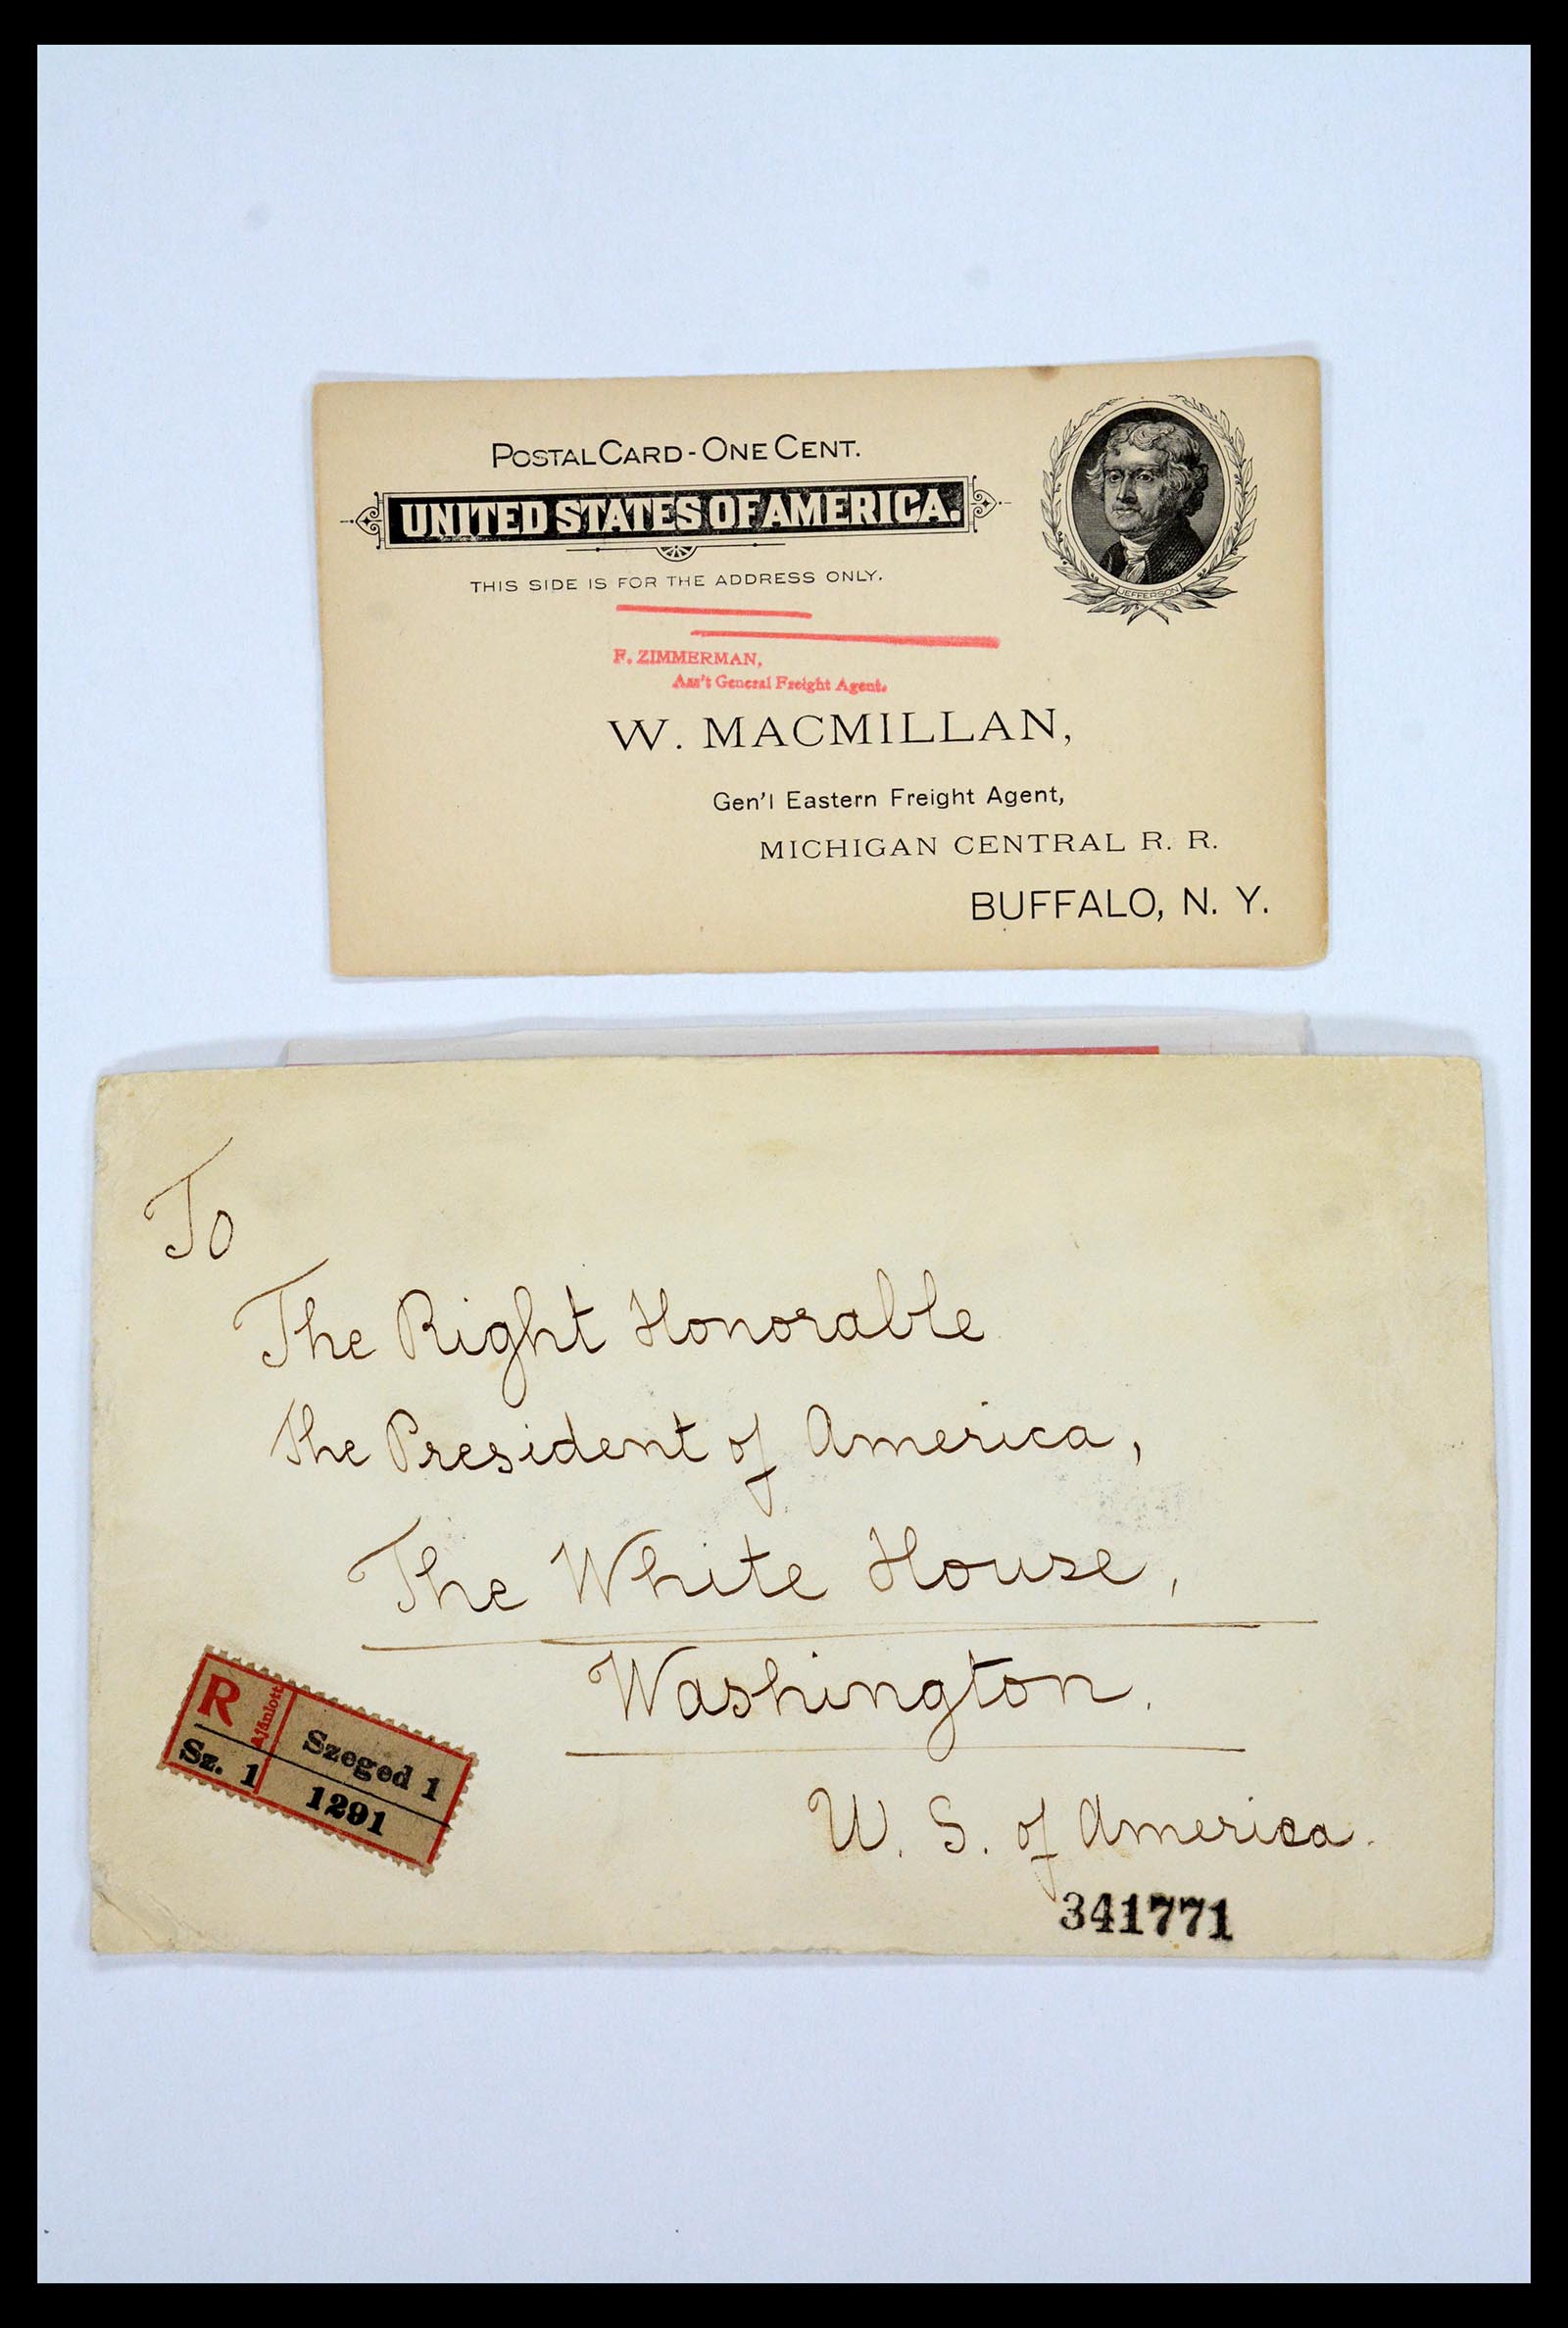 POSTAL CARD - ONE CENT.
UNITED STATES OF AMERICA.
THIS SIDE IS FOR THE ADDRESS ONLY.
JEFFERSON
F. ZIMMERMAN,
Ass't General Freight Agent.
W. MACMILLAN,
Gen'l Eastern Freight Agent,
MICHIGAN CENTRAL R. R.
BUFFALO, N. Y.
To
The Right Honorable
the President of America,
The White House,
Washington.
U. S. of America.
R
Ajánlott
Szeged 1
Sz. 1
1291
341771